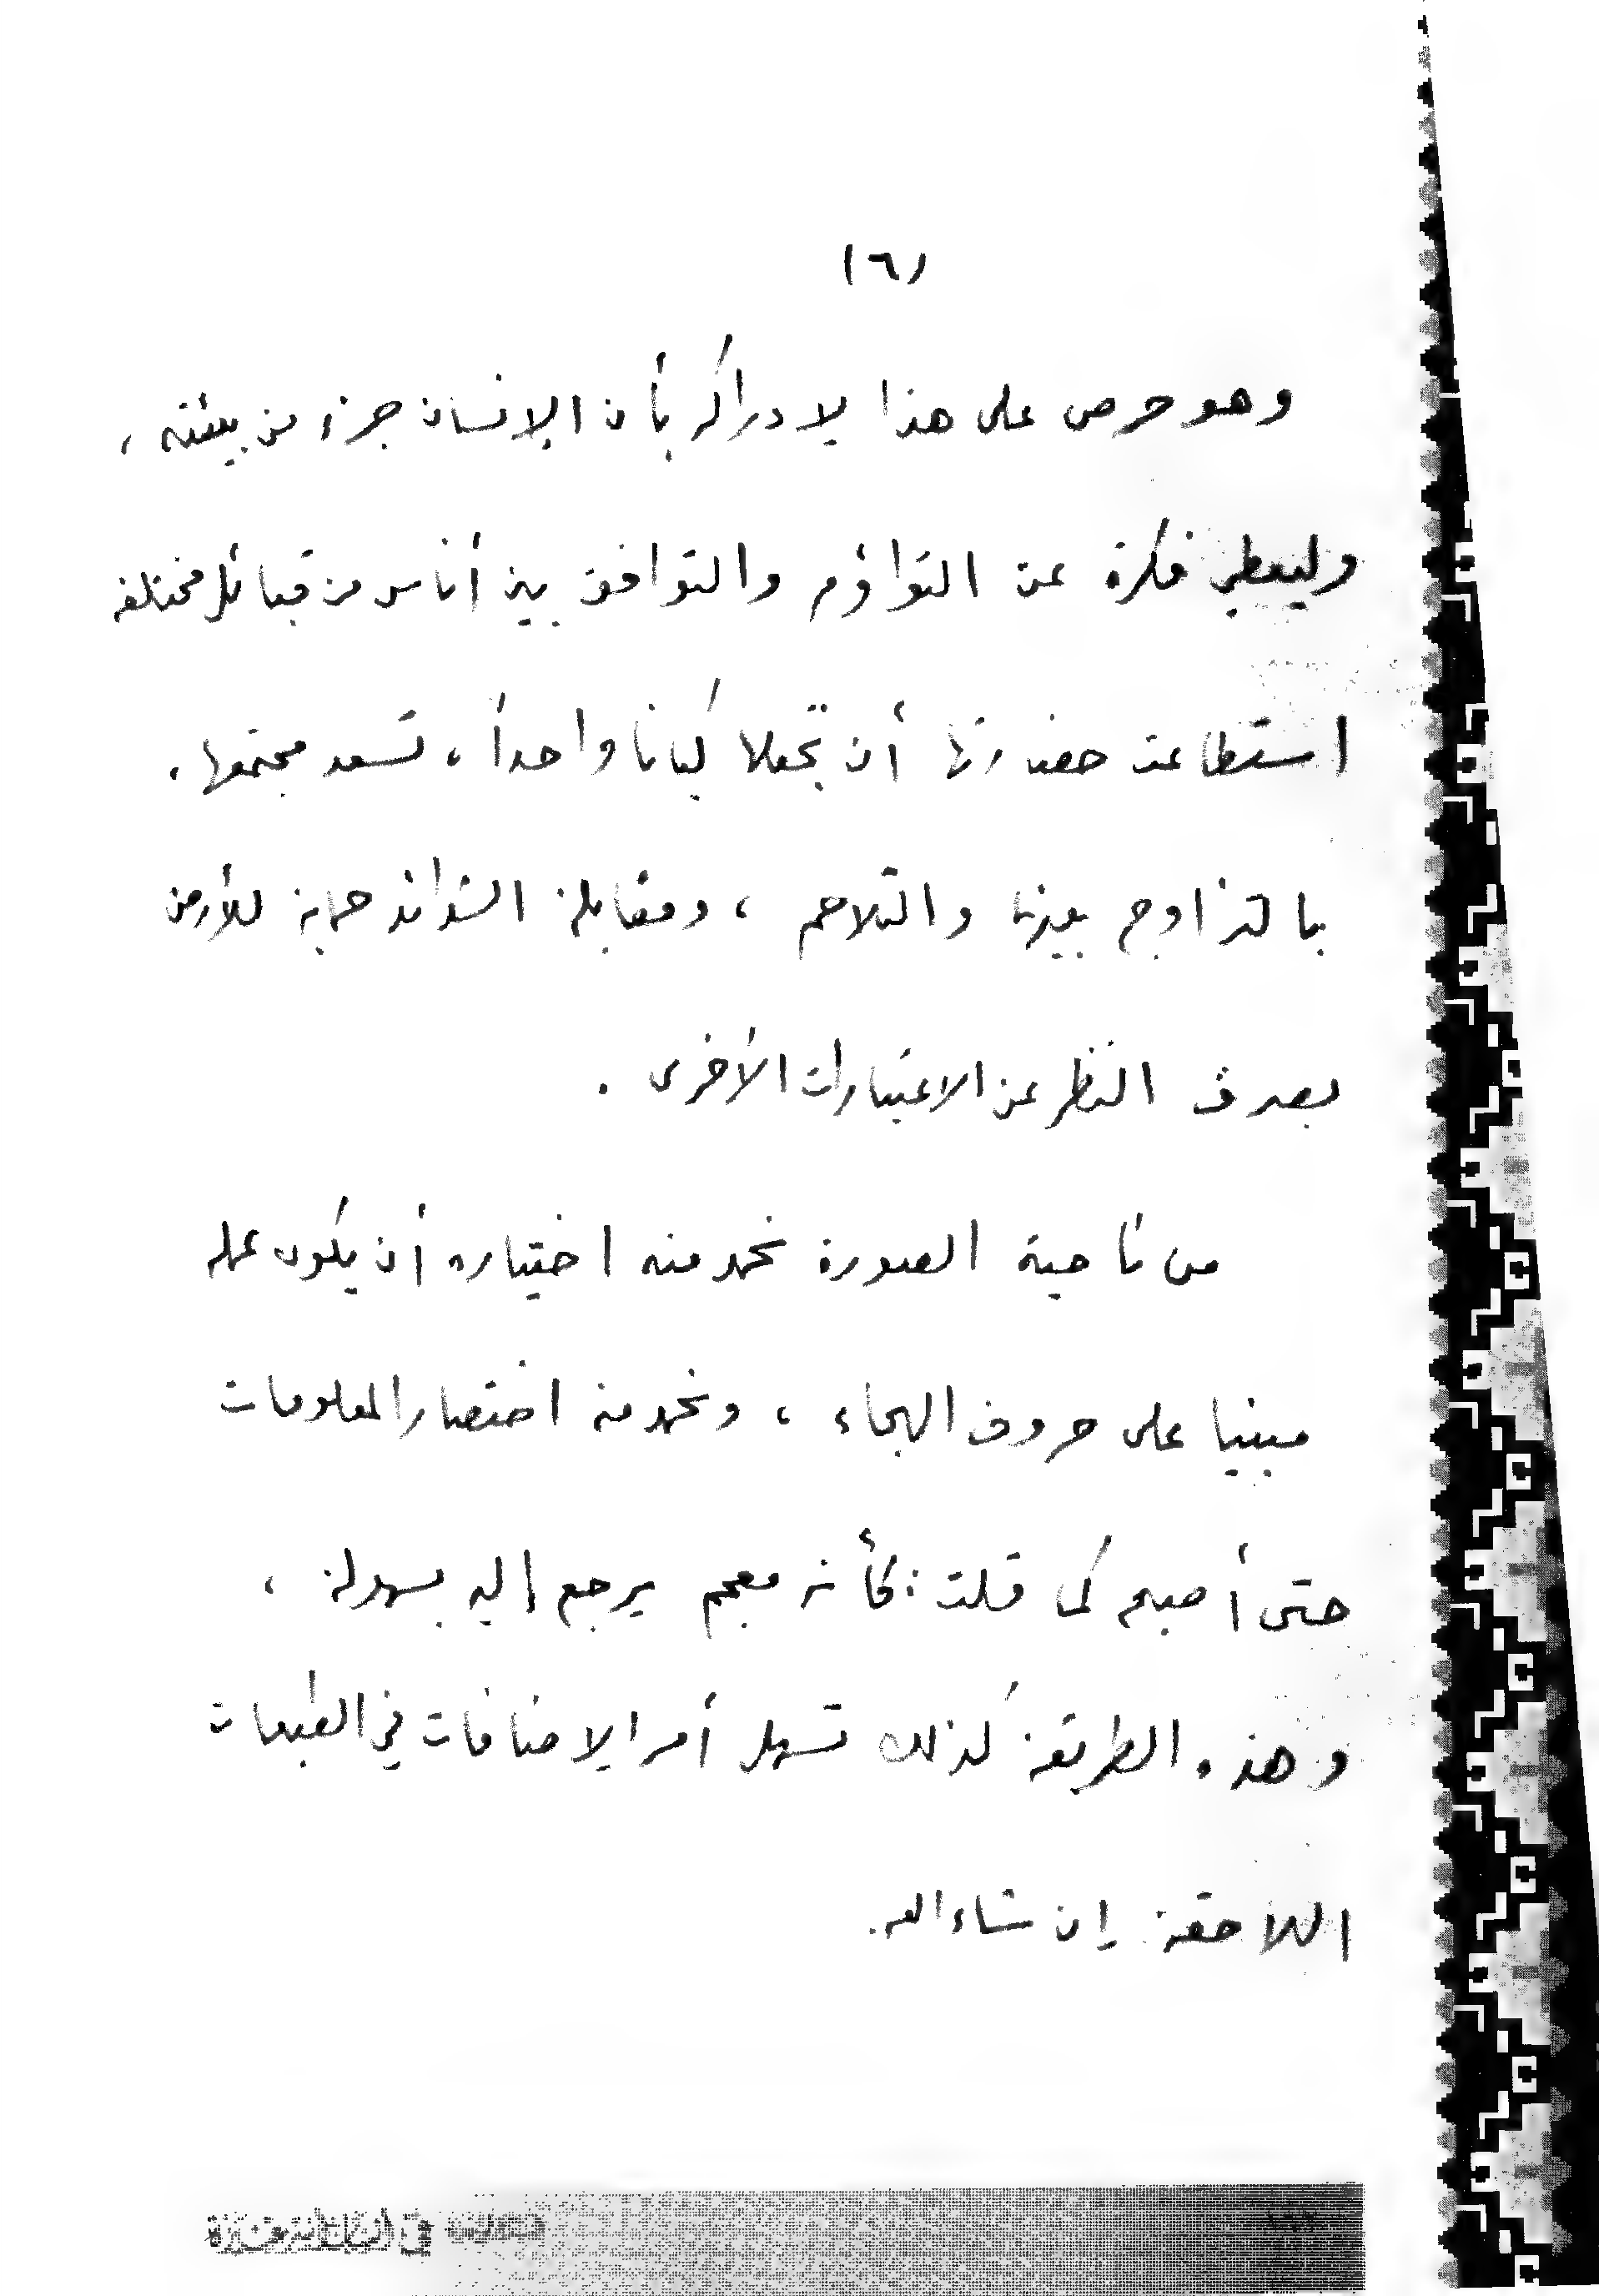 (٦)
وهو حرص على هذا لإدراكه بأن الإنسان جزء من بيئته ،
وليعطي فكرة عن التواؤم والتوافق بين أناس من قبائل مختلفة
استطاعت حضارتها أن تجعلها كيانا واحداً ، تسعد مجتمعها ،
بالتزاوج بينها والتلاحم ، ومقابلة الشدائد حماية للأرض
بصرف النظر عن الاعتبارات الأخرى .
من ناحية الصورة نحمد منه اختياره أن يكون عمله
مبنيا على حروف الهجاء ، ونحمد منه اختصار المعلومات
حتى أصبح كما قلت : كأنه معجم يرجع إليه بسهولة ،
وهذه الطريقة كذلك تسهل أمر الإضافات في الطبعات
اللاحقة إن شاء الله .